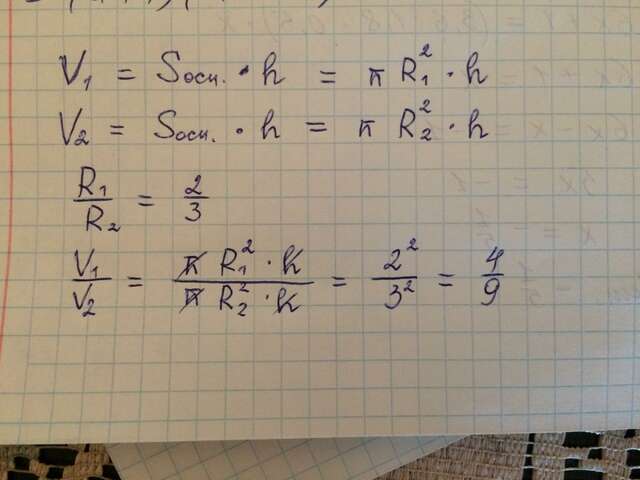 V₁ = Sосн. · h = π R₁² · h
V₂ = Sосн. · h = π R₂² · h
R₁/R₂ = 2/3
V₁/V₂ = π R₁² · h / π R₂² · h = 2²/3² = 4/9